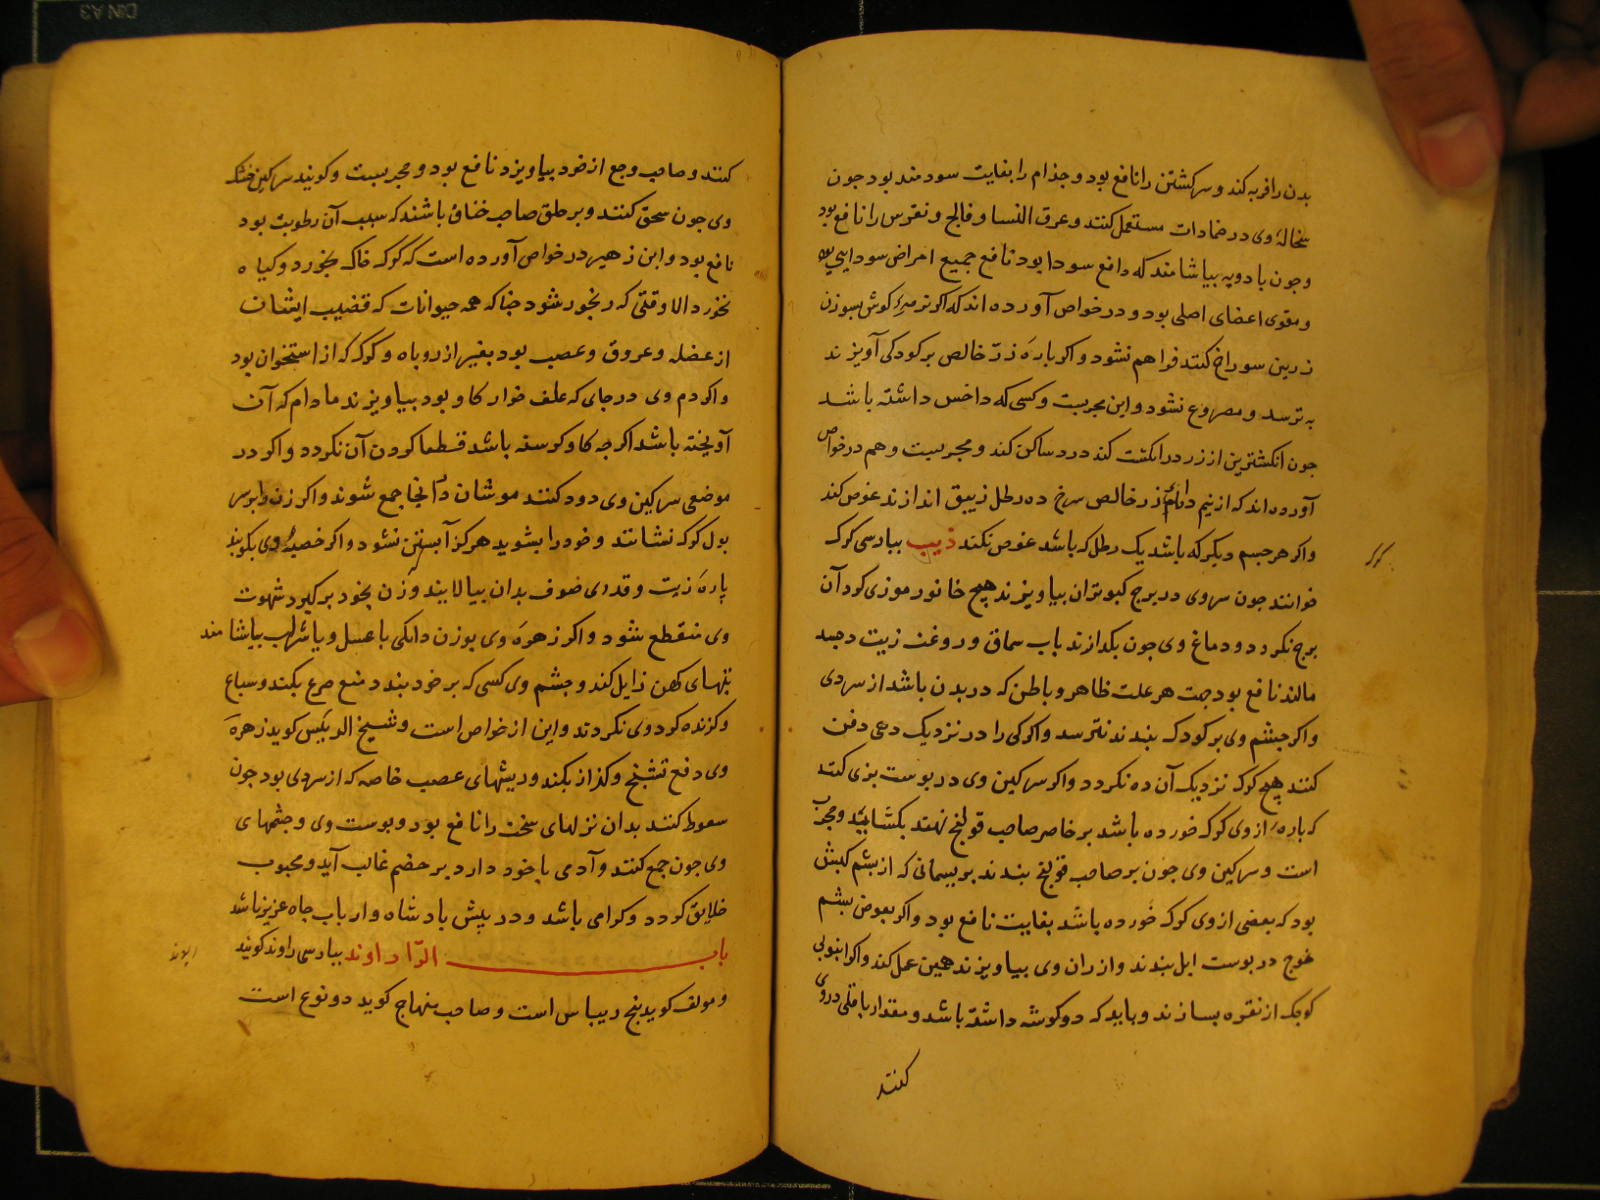 بدن را فربه کند و سرکشتن را نافع بود و جذام را بغایت سودمند بود جون
سخالهٔ وی در ضمادات مستعمل کنند و عرق النسا و فالج و نقرس را نافع بود
و جون با دویه بیاشامند که دافع سودا بود نافع جمیع امراض سودایی بود
و مقوی اعضای اصلی بود و در خواص آورده اند که اکر نرمهٔ کوش بسوزن
زرین سوراخ کنند فراهم نشود و اکر بارهٔ زر خالص بر کودکی آویزند
به ترسد و مصروع نشود و این مجربست و کسی که داخس داشته باشد
جون انکشترین از زر در انکشت کند درد ساکن کند و مجربست و هم در خواص
آورده اند که از نیم دانک زر خالص سرخ ده رطل زیبق اندازند غوص کند
و اکر هر جسم دیکر که باشد یک رطل که باشد غوص نکند ذیب بپارسی کرک
کرک
خوانند جون سر وی در برج کبوتران بیاویزند هیچ جانور موذی کرد آن
برج نکردد و دماغ وی جون بکدازند باب سماق و روغن زیت در جسد
مالند نافع بود جهت هر علت ظاهر و باطن که در بدن باشد از سردی
و اکر جشم وی بر کودک بندند نترسد و اکر کی را در نزدیک دهی دفن
کنند هیچ کرک نزدیک آن ده نکردد و اکر سرکین وی در بوست بزی کنند
که باره از وی کرک خورده باشد بر خاصر صاحب قولنج نهند بکشاید و مجرب
است و سرکین وی جون بر صاحب قولنج بندند بریسمانی که از بشم کبش
بود که بعضی از وی کرک خورده باشد بغایت نافع بود و اکر بعوض بشم
قوج در بوست ابل بندند و از ران وی بیاویزند همین عمل کند و اکر انبوبی
کوجک از نقره بسازند و باید که دو کوشه داشته باشد و مقدار باقلی در وی
کنند
کنند و صاحب وجع از خود بیاویزد نافع بود و مجربست و کویند سرکین خشک
وی جون سحق کنند و بر حلق صاحب خناق باشند که سبب آن رطوبت بود
نافع بود و ابن زهیر در خواص آورده است که کرک خاک بخورد و کیاه
نخورد الا وقتی که رنجور شود جنا که همه حیوانات که قضیب ایشان
از عضله و عروق و عصب بود بغیر از روباه و کرک که از استخوان بود
و اکر دم وی در جای که علف خوار کاو بود بیاویزند مادام که آن
آویخته باشد اکرجه کاو کرسنه باشد قطعا کرد آن نکردد و اکر در
موضعی سرکین وی دود کنند موشان در آنجا جمع شوند و اکر زن را بر سر
بول کرک نشانند و خود را بشوید هرکز آبستن نشود و اکر خصیهٔ وی بکوبند
پارهٔ زیت و قدری صوف بدان بیالایند و زن بخود برکیرد شهوت
وی منقطع شود و اکر زهرهٔ وی بوزن دانکی با عسل و یا شراب بیاشامند
تبهای کهن زایل کند و جشم وی کسی که بر خود بندد منع صرع بکند و سباع
و کزنده کرد وی نکردند و این از خواص است و شیخ الرییس کوید زهرهٔ
وی دفع تشنج و کزاز بکند و ریشهای عصب خاصه که از سردی بود جون
سعوط کنند بدان نزلهای سخت را نافع بود و بوست وی و جشمهای
وی جون جمع کنند و آدمی با خود دارد بر خصم غالب آید و محبوب
خلایق کردد و کرامی باشد و در بیش بادشاه و ارباب جاه عزیز باشد
باب الرّا راوند بپارسی راوند کویند
راوند
و مولف کوید بیخ ریباس است و صاحب منهاج کوید دو نوع است